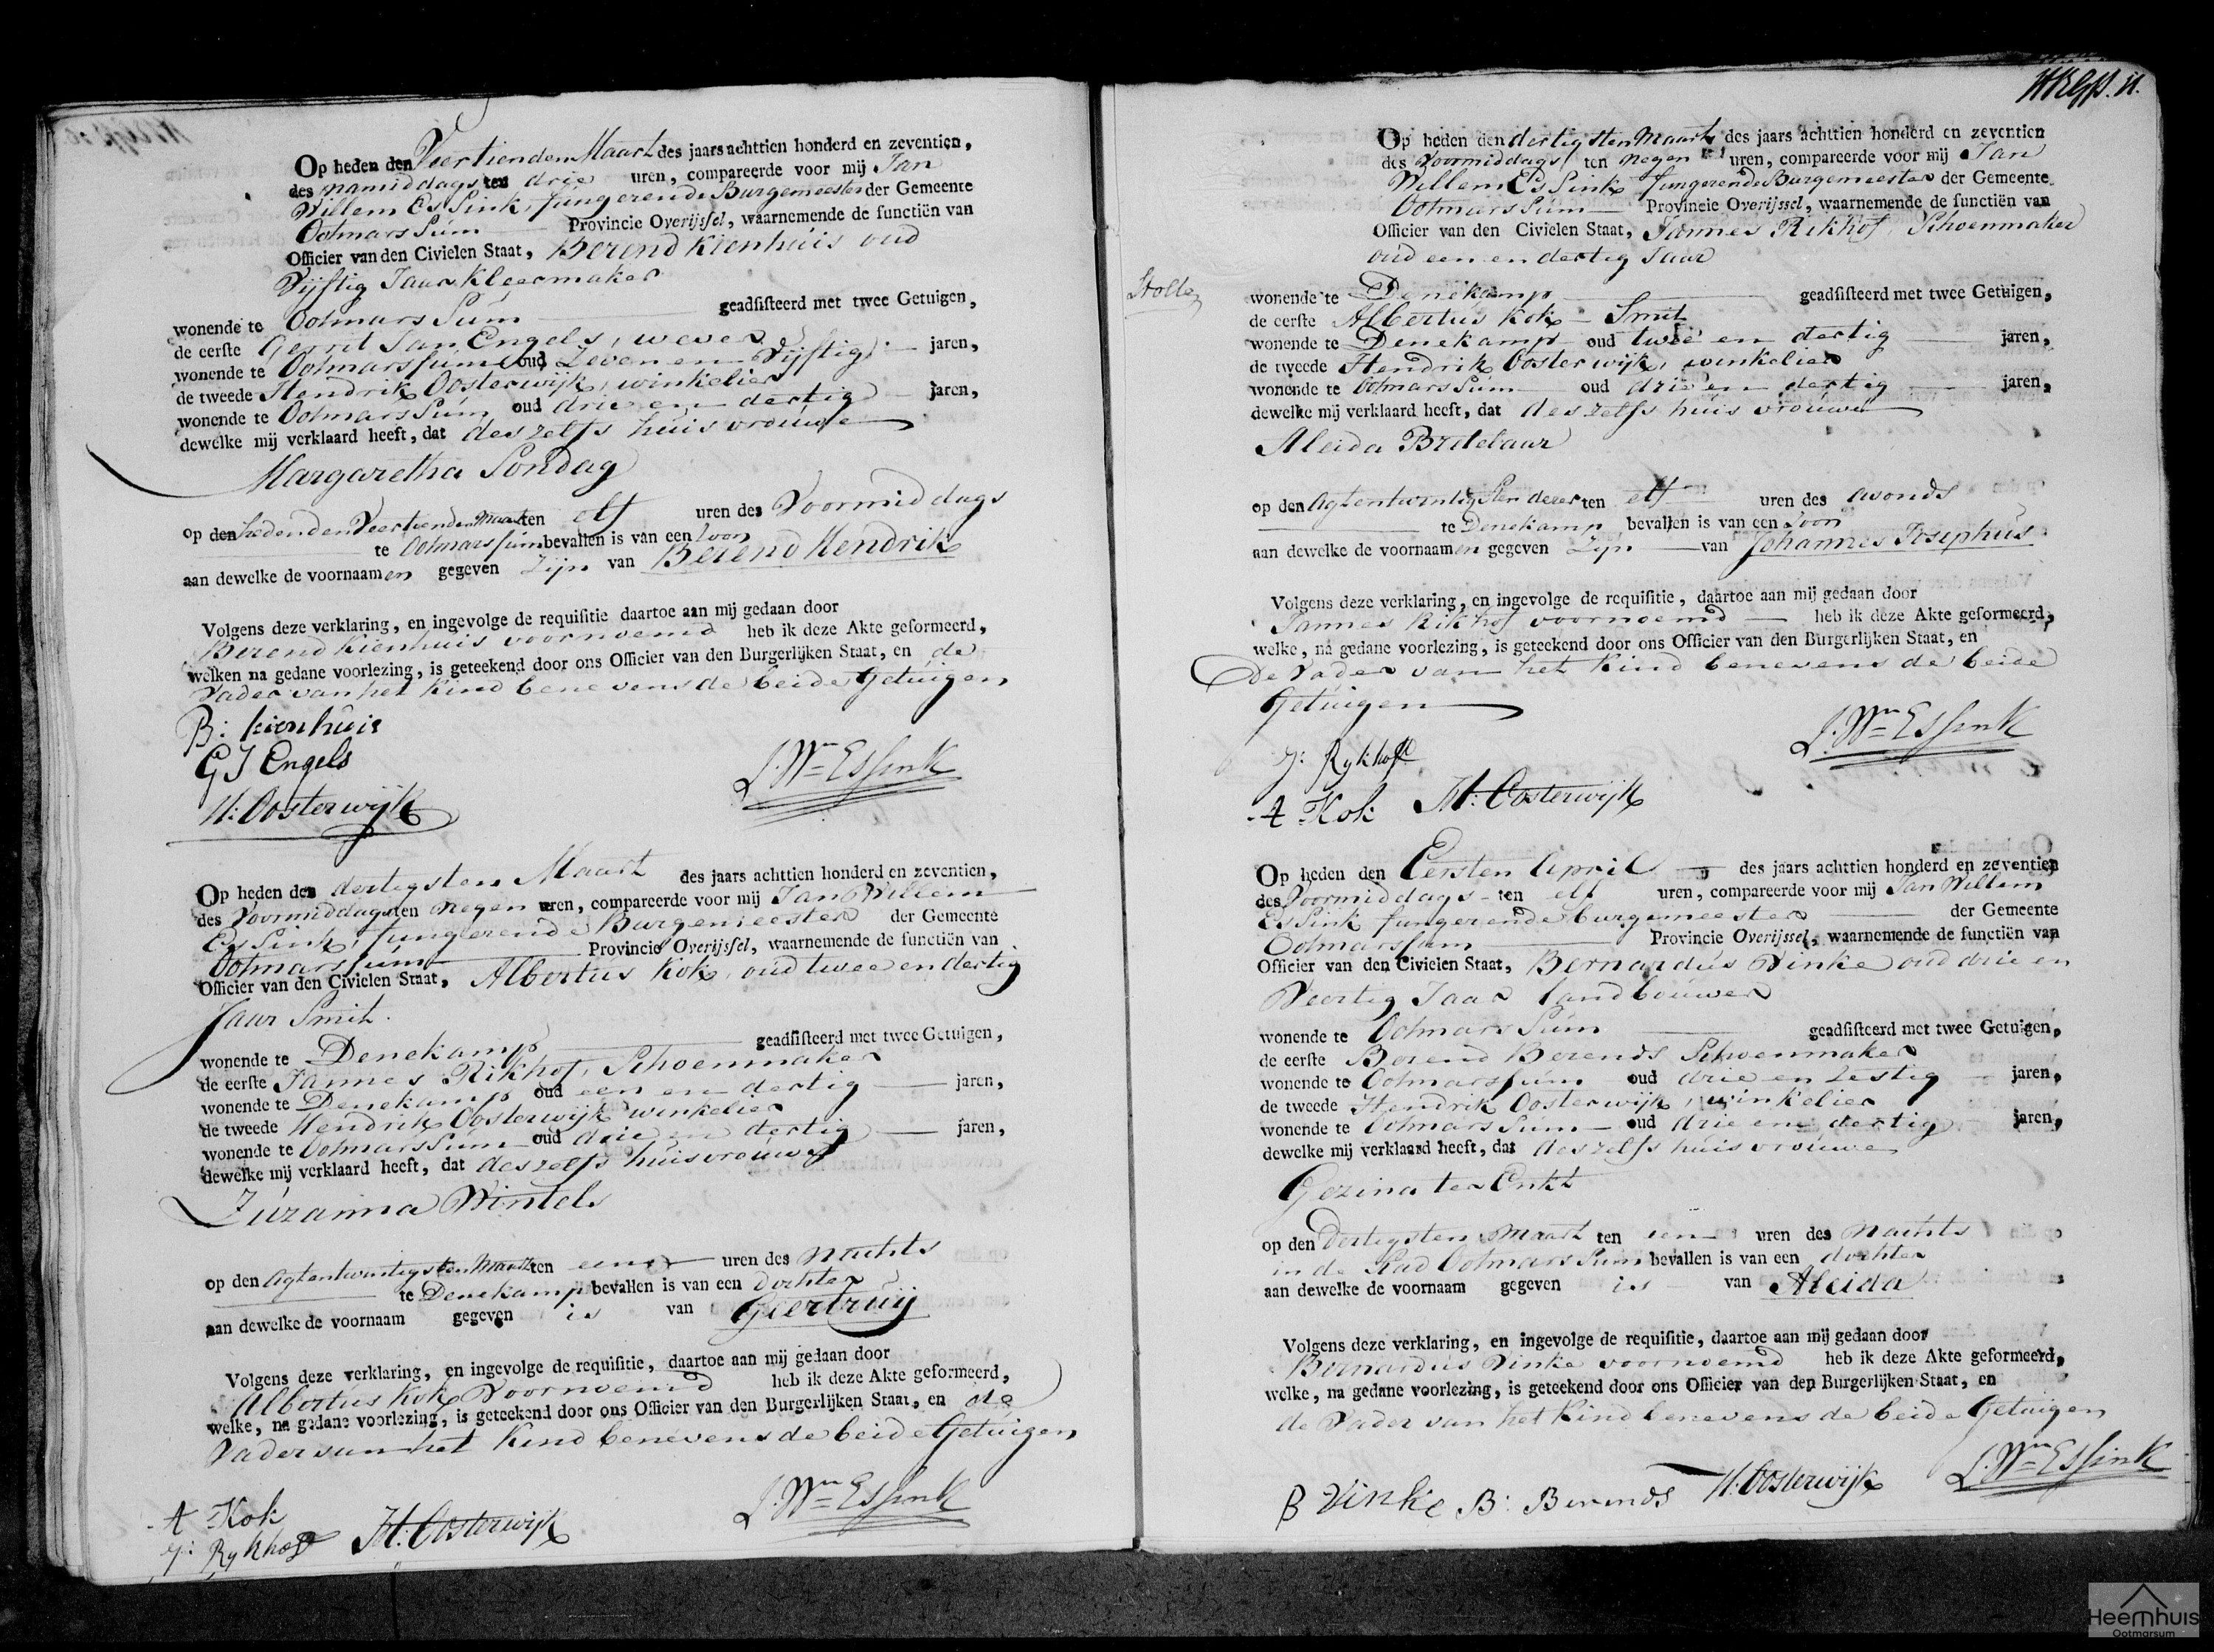 Op heden den Veertienden Maart des jaars achttien honderd en zeventien,
des namiddags ten drie uren, compareerde voor mij Jan
Willem Essink, fungerende Burgemeester der Gemeente
Ootmarssum Provincie Overijssel, waarnemende de functiën van
Officier van den Civielen Staat, Berend Kienhuis oud
Vijftig Jaar Kleermaker
wonende te Ootmarssum geadsisteerd met twee Getuigen,
de eerste Gerrit Jan Engels, wever
wonende te Ootmarssum oud Zeven en Vijftig jaren,
de tweede Hendrik Oosterwijk, winkelier
wonende te Ootmarssum oud drie en dertig jaren,
dewelke mij verklaard heeft, dat deszelfs huisvrouwe
Margaretha Sondag
op den heden den Veertienden Maart ten elf uren des Voormiddags
te Ootmarssum bevallen is van een Zoon
aan dewelke de voornaamen gegeven Zijn van Berend Hendrik
Volgens deze verklaring, en ingevolge de requisitie daartoe aan mij gedaan door
Berend Kienhuis voornoemd heb ik deze Akte geformeerd,
welken na gedane voorlezing, is geteekend door ons Officier van den Burgerlijken Staat, en de
Vader van het Kind benevens de beide Getuigen
B: kienhuis
G J Engels
J. Wm Essink
H: Oosterwijk
Op heden den dertigsten Maart des jaars achttien honderd en zeventien,
des Voormiddags ten negen uren, compareerde voor mij Jan Willem
Essink, fungerende Burgemeester der Gemeente
Ootmarssum Provincie Overijssel, waarnemende de functiën van
Officier van den Civielen Staat, Albertus Kok, oud twee en dertig
Jaar Smit.
wonende te Denekamp geadsisteerd met twee Getuigen,
de eerste Jannes Rikhof, Schoenmaker
wonende te Denekamp oud een en dertig jaren,
de tweede Hendrik Oosterwijk winkelier
wonende te Ootmarssum oud drie en dertig jaren,
dewelke mij verklaard heeft, dat deszelfs huisvrouwe
Zuzanna Wintels
op den Agtentwintigsten Maart ten een uren des nachts
te Denekamp bevallen is van een dochter
aan dewelke de voornaam gegeven is van Geertruij
Volgens deze verklaring, en ingevolge de requisitie, daartoe aan mij gedaan door
Albertus Kok Voornoemd heb ik deze Akte geformeerd,
welke, na gedane voorlezing, is geteekend door ons Officier van den Burgerlijken Staat, en de
Vader van het Kind benevens de beide Getuigen
J. Wm Essink
A Kok
J: Rykhof H: Oosterwijk
Op heden den dertigsten Maart des jaars achttien honderd en zeventien
des Voormiddags ten negen uren, compareerde voor mij Jan
Willem Essink fungerende Burgemeester der Gemeente
Ootmarssum Provincie Overijssel, waarnemende de functiën van
Officier van den Civielen Staat, Jannes Rikhof, Schoenmaker
oud een en dertig Jaar
wonende te Denekamp geadsisteerd met twee Getuigen,
de eerste Albertus Kok Smit
wonende te Denekamp oud twee en dertig jaren,
de tweede Hendrik Oosterwijk, winkelier
wonende te Ootmarssum oud drie en dertig jaren,
dewelke mij verklaard heeft, dat deszelfs huisvrouwe
Aleida Bretelaar
op den Agtentwintigsten dezer ten elf uren des avonds
te Denekamp bevallen is van een Zoon
aan dewelke de voornaamen gegeven Zijn van Johannes Josephus
Volgens deze verklaring, en ingevolge de requisitie, daartoe aan mij gedaan door
Jannes Rikhof voornoemd heb ik deze Akte geformeerd,
welke, na gedane voorlezing, is geteekend door ons Officier van den Burgerlijken Staat, en
de Vader van het Kind benevens de beide
Getuigen
J. Wm Essink
J: Rykhof
A Kok H: Oosterwijk
Op heden den Eersten April des jaars achttien honderd en zeventien
des Voormiddags ten elf uren, compareerde voor mij Jan Willem
Essink fungerende burgemeester der Gemeente
Ootmarssum Provincie Overijssel, waarnemende de functiën van
Officier van den Civielen Staat, Bernardus Vinke oud drie en
Veertig Jaar landbouwer
wonende te Ootmarssum geadsisteerd met twee Getuigen,
de eerste Berend Berends Schoenmaker
wonende te Ootmarssum oud drie en zestig jaren,
de tweede Hendrik Oosterwijk, winkelier
wonende te Ootmarssum oud drie en dertig jaren,
dewelke mij verklaard heeft, dat deszelfs huisvrouwe
Gezina ter Enkt
op den Dertigsten Maart ten een uren des nachts
in de Stad Ootmarssum bevallen is van een dochter
aan dewelke de voornaam gegeven is van Aleida
Volgens deze verklaring, en ingevolge de requisitie, daartoe aan mij gedaan door
Bernardus Vinke voornoemd heb ik deze Akte geformeerd,
welke, na gedane voorlezing, is geteekend door ons Officier van den Burgerlijken Staat, en
de Vader van het Kind benevens de beide Getuigen
B Vinke B: Berends H: Oosterwijk J. Wm Essink
Heemhuis
Ootmarsum